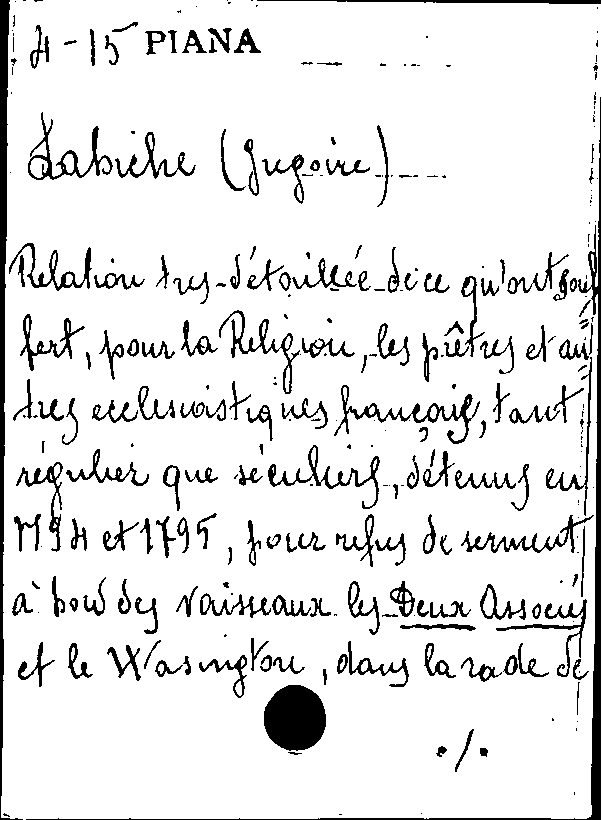 4-15 PIANA
Labiche (Grégoire)
Relation tres-détaillée de ce qu'ont souf
fert, pour la Religion, les prêtres et au
tres ecclesiastiques français, tant
régulier que séculiers, détenus en
1794 et 1795, pour refus de serment
à bord des vaisseaux les Deux Associés
et le Wasington, dans la rade de
./.